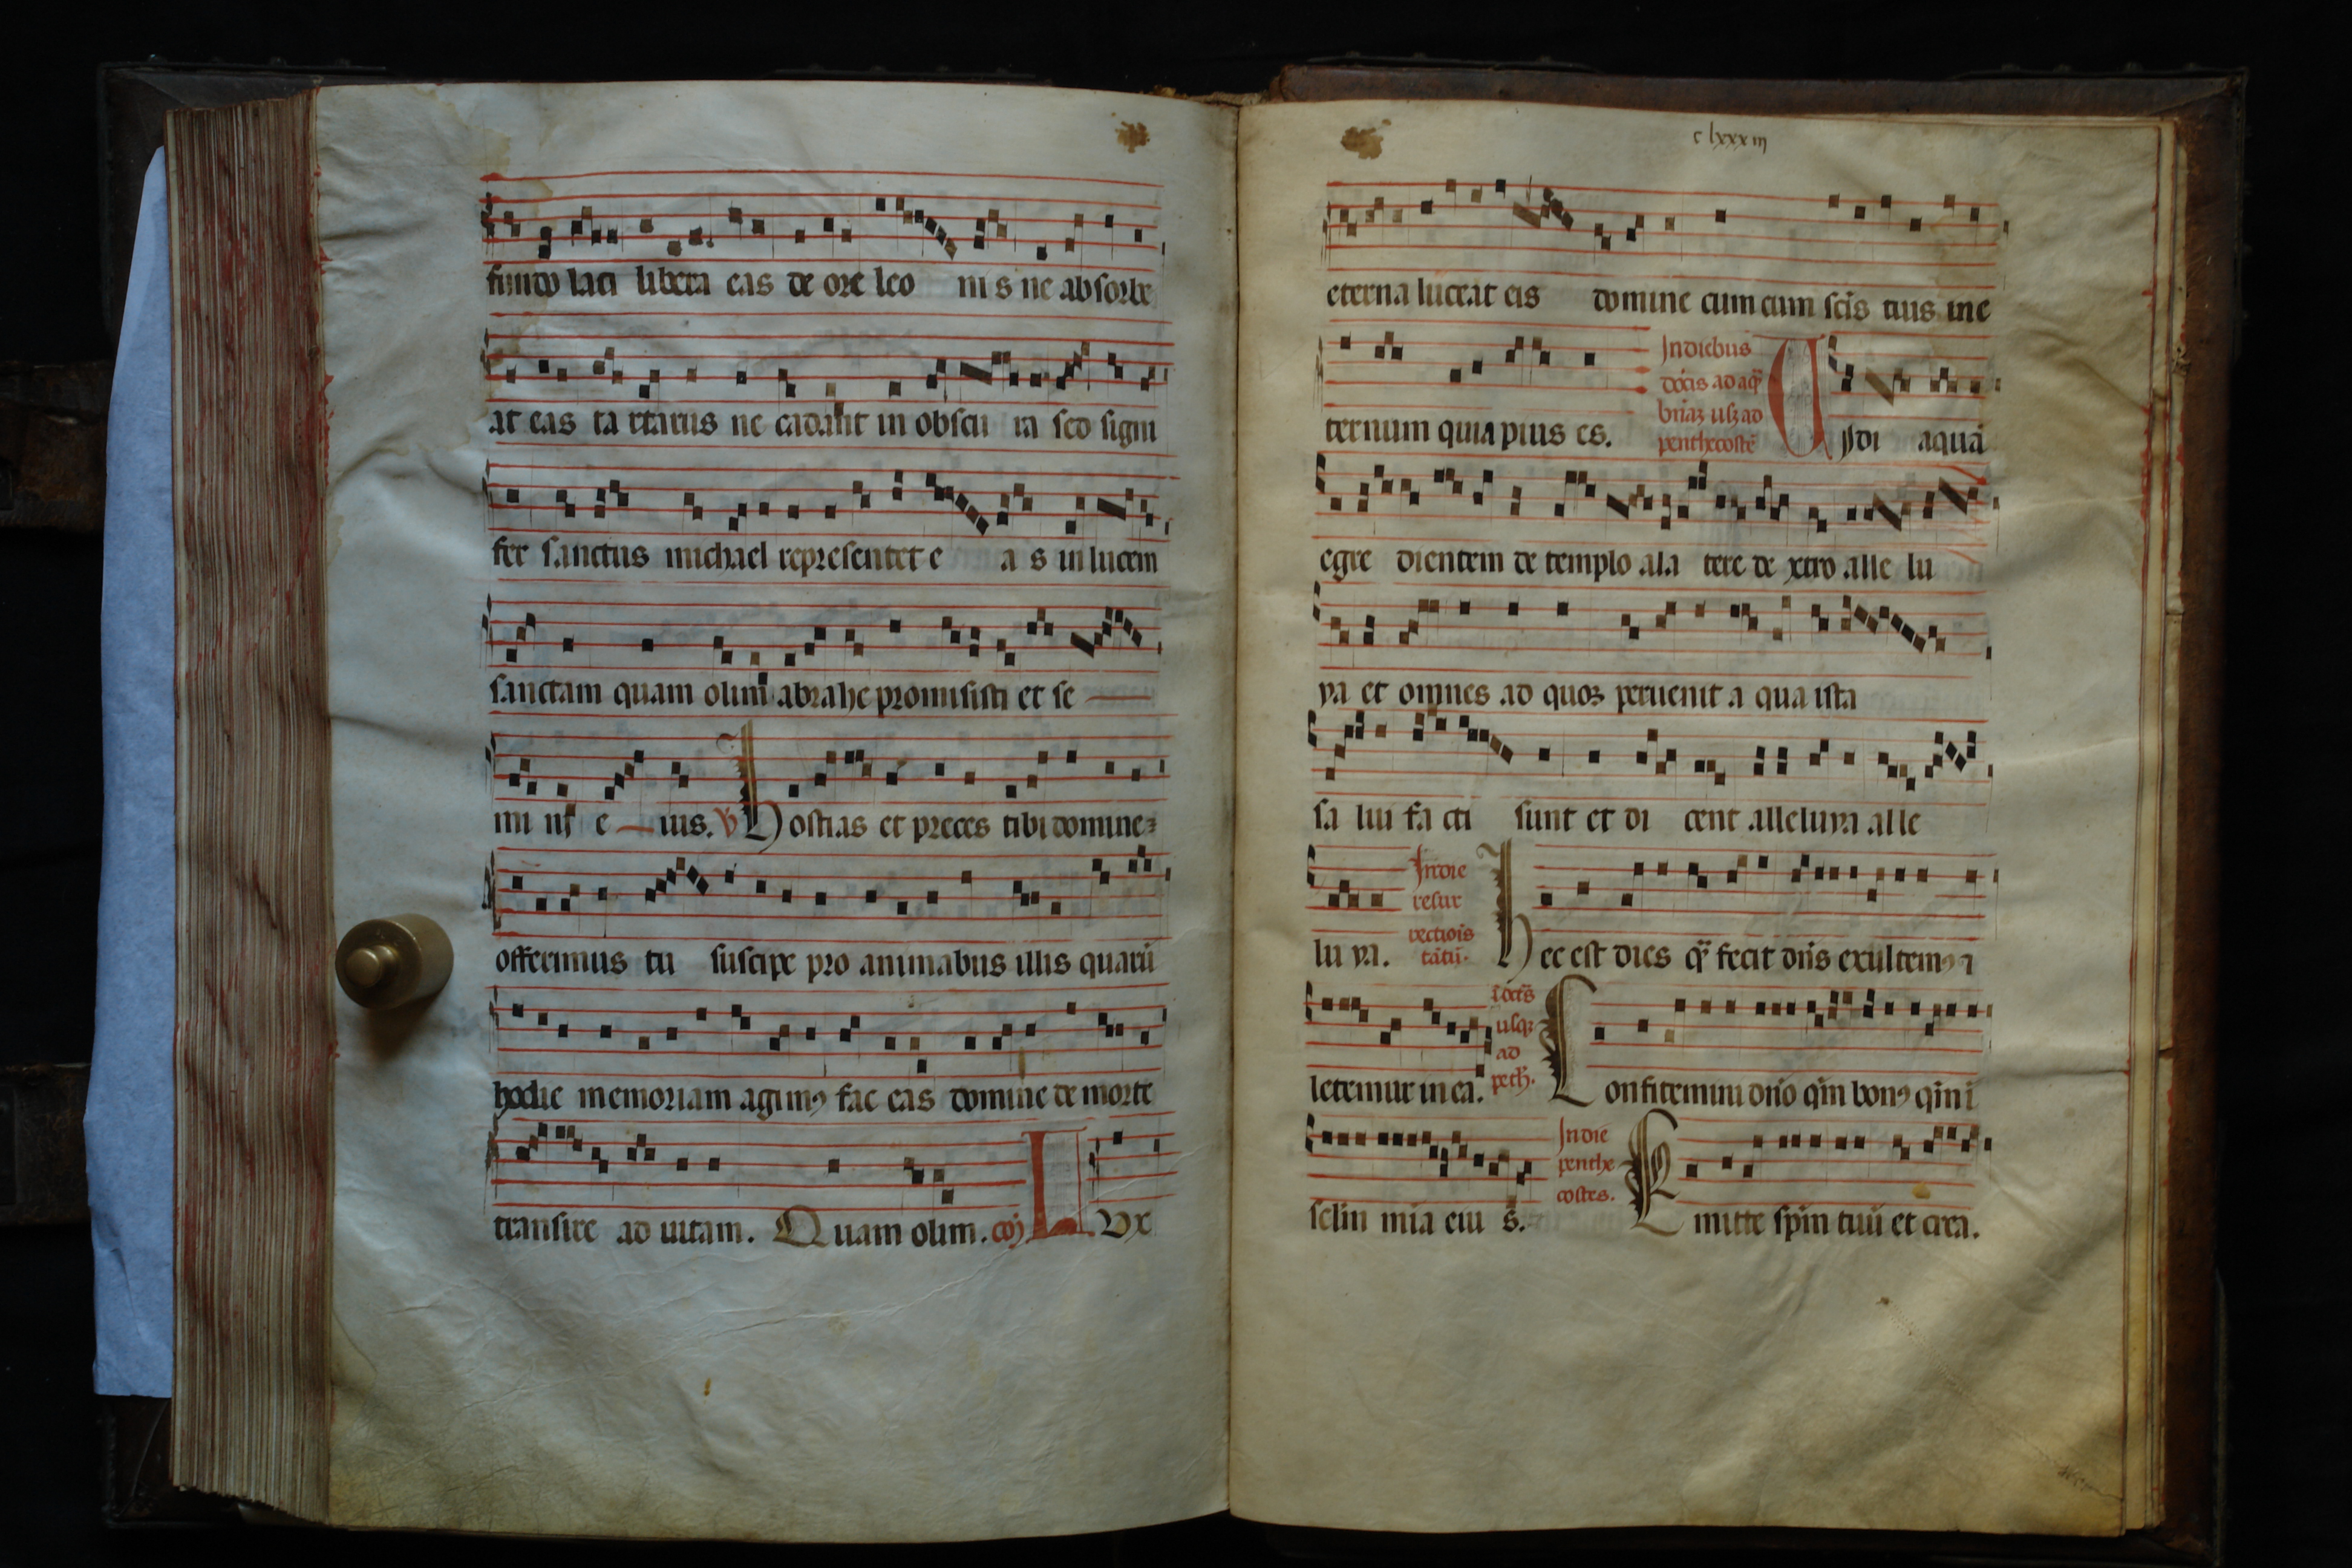 fundo laci libera eas de ore leo nis ne absorbe
at eas ta rtarus ne cadant in obscu ra sed signi
fer sanctus michael representet e a s in lucem
sanctam quam olim abrahe promisisti et se
mi ni e ius. ℣ Hostias et preces tibi domine
offerimus tu suscipe pro animabus illis quarū
hodie memoriam agimꝰ fac eas domine de morte
transire ad uitam. Quam olim. cōj Lvx
c lxxxiij
eterna luceat eis domine cum cum scīs tuis in e
ternum quia pius es.
In diebus
dōcis ad aq̄
penthecostē
Vjdi aquā
egre dientem de templo a la tere de xtro alle lu
ya et omnes ad quoꝫ peruenit a qua ista
sa lui fa cti sunt et di cent alleluya alle
lu ya.
In die
resur
rectiōis
tātū.
Hec est dies q̄ fecit dn̄s exultemꝰ
letemur in ea.
usqꝫ
ad
pētħ.
Confitemini dn̄o qm̄ bonꝰ qm̄ i
sclm̄ mīa eiu s.
In die
penthe
costes.
Emitte spm̄ tuū et crea.